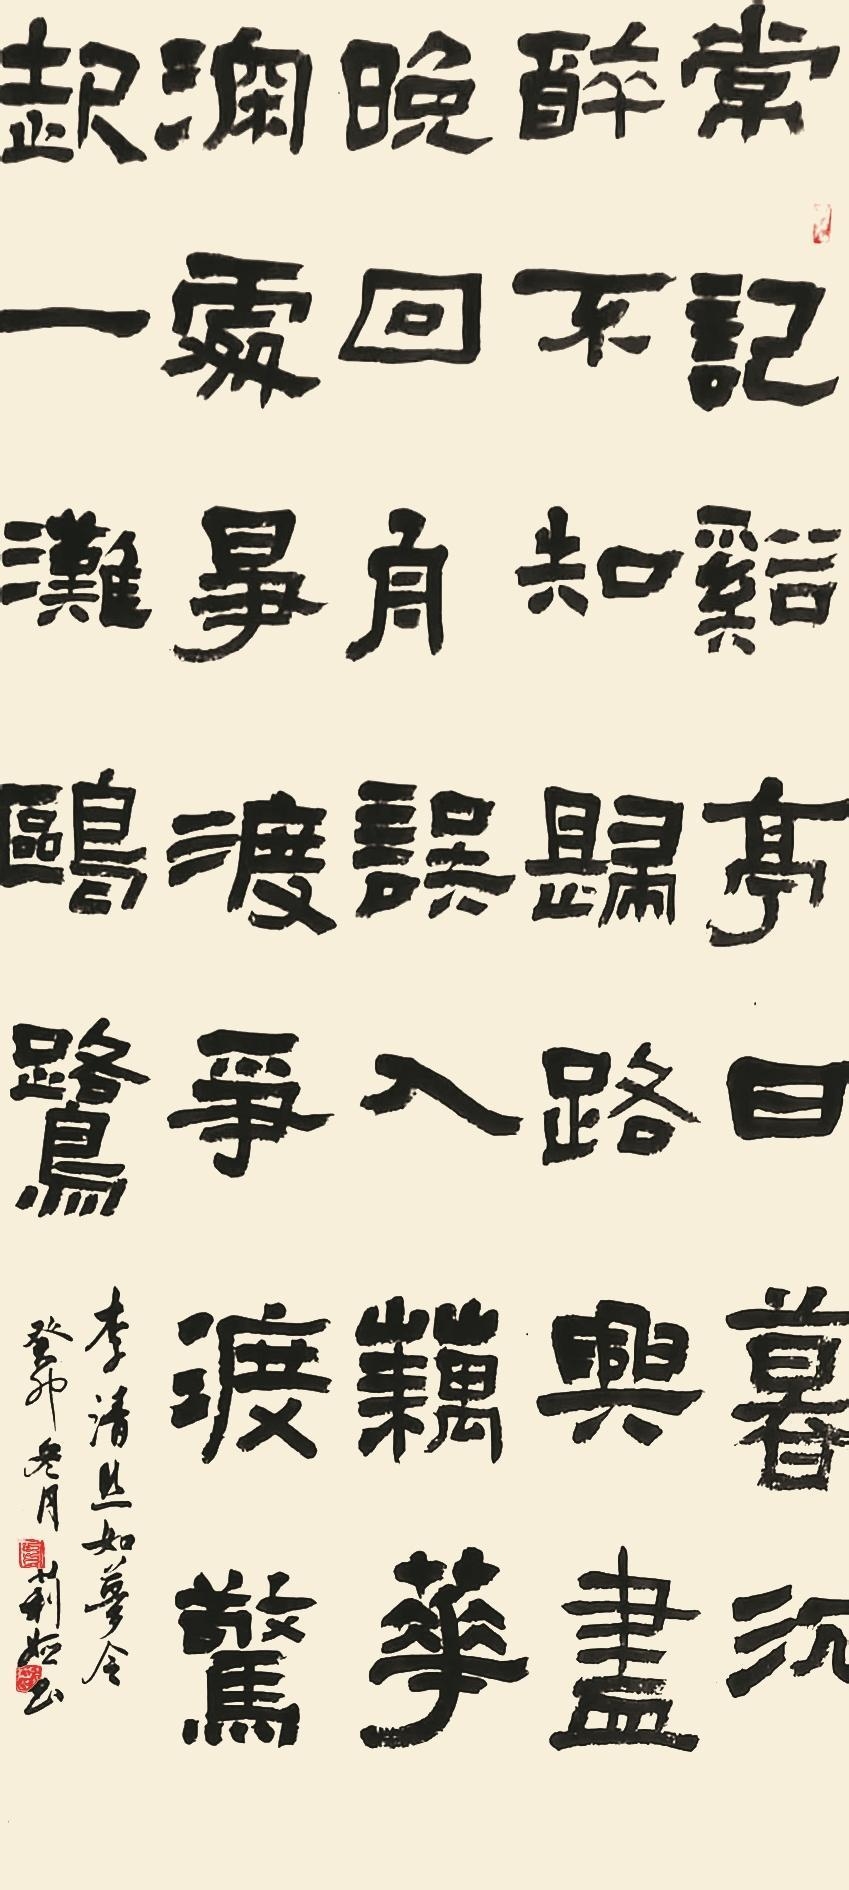 常記谿亭日暮沉
醉不知歸路興盡
晚回舟誤入藕華
深處爭渡爭渡驚
起一灘鷗鷺
李清照如夢令
癸卯冬月莉书